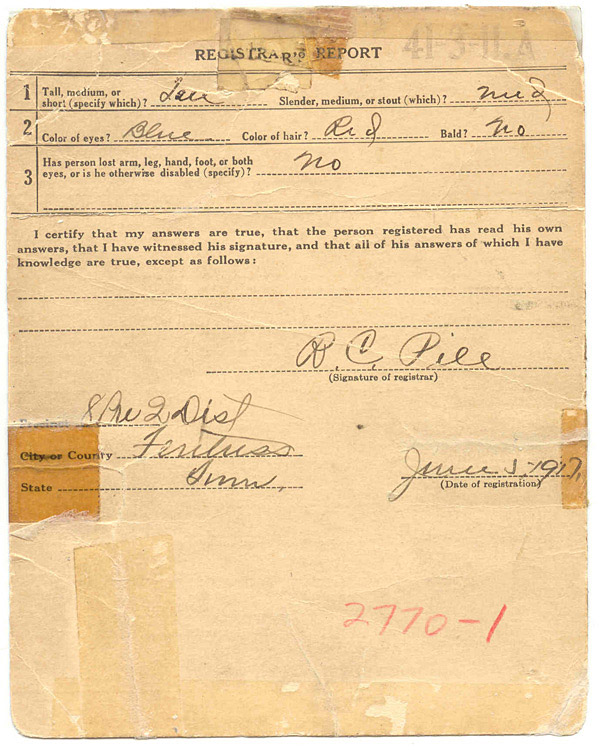 REGISTRAR'S REPORT 41-3-11.A
1 Tall, medium, or
short (specify which)? Tall Slender, medium, or stout (which)? med
2 Color of eyes? Blue Color of hair? Red Bald? No
3 Has person lost arm, leg, hand, foot, or both
eyes, or is he otherwise disabled (specify)? No
I certify that my answers are true, that the person registered has read his own
answers, that I have witnessed his signature, and that all of his answers of which I have
knowledge are true, except as follows:
R. C. Pile
(Signature of registrar)
Pre 2 Dist
City or County Fentress
State Tenn, June 5-1917,
(Date of registration)
2770-1